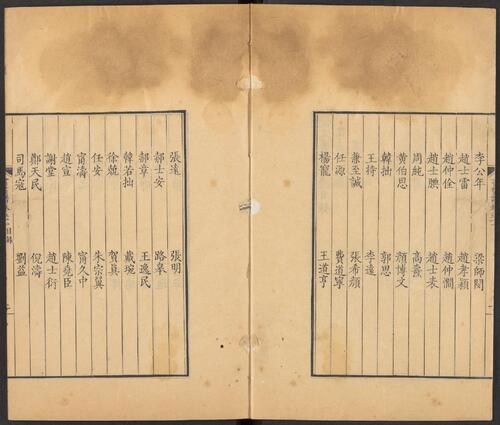 李公年 梁師閔
趙士雷 趙孝穎
趙仲佺 趙仲僩
趙士腆 趙士表
周純 高燾
黃伯思 顏博文
韓拙 郭思
王持 李遠
蕭至誠 張希顏
任源 費道寧
楊寵 王道亨
張遠 張明
郝士安 路皋
郝章 王逸民
韓若拙 戴琬
徐兢 賀真
任安 朱宗翼
甯濤 甯久中
趙宣 陳堯臣
謝堂 趙士衍
鄭天民 倪濤
司馬寇 劉益
目錄